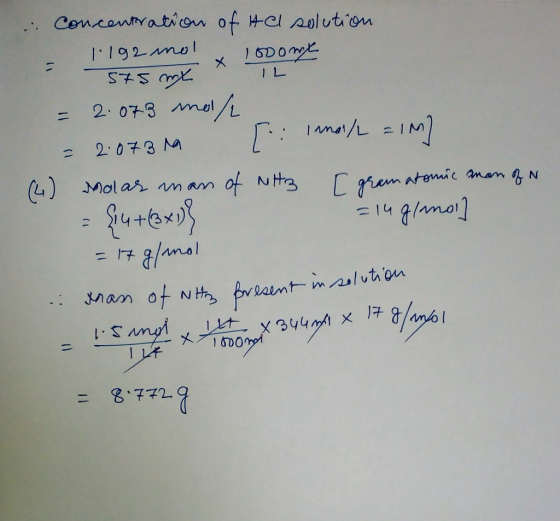 ∴ Concentration of HCl solution
= 1.192 mol / 575 mL × 1000 mL / 1 L
= 2.073 mol/L
= 2.073 M [∵ 1 mol/L = 1M]
(4) Molar mass of NH3 [gram atomic mass of N = 14 g/mol]
= {14+(3×1)}
= 17 g/mol
∴ Mass of NH3 present in solution
= 1.5 mol / 1 Lt × 1 Lt / 1000 ml × 344 ml × 17 g/mol
= 8.772 g